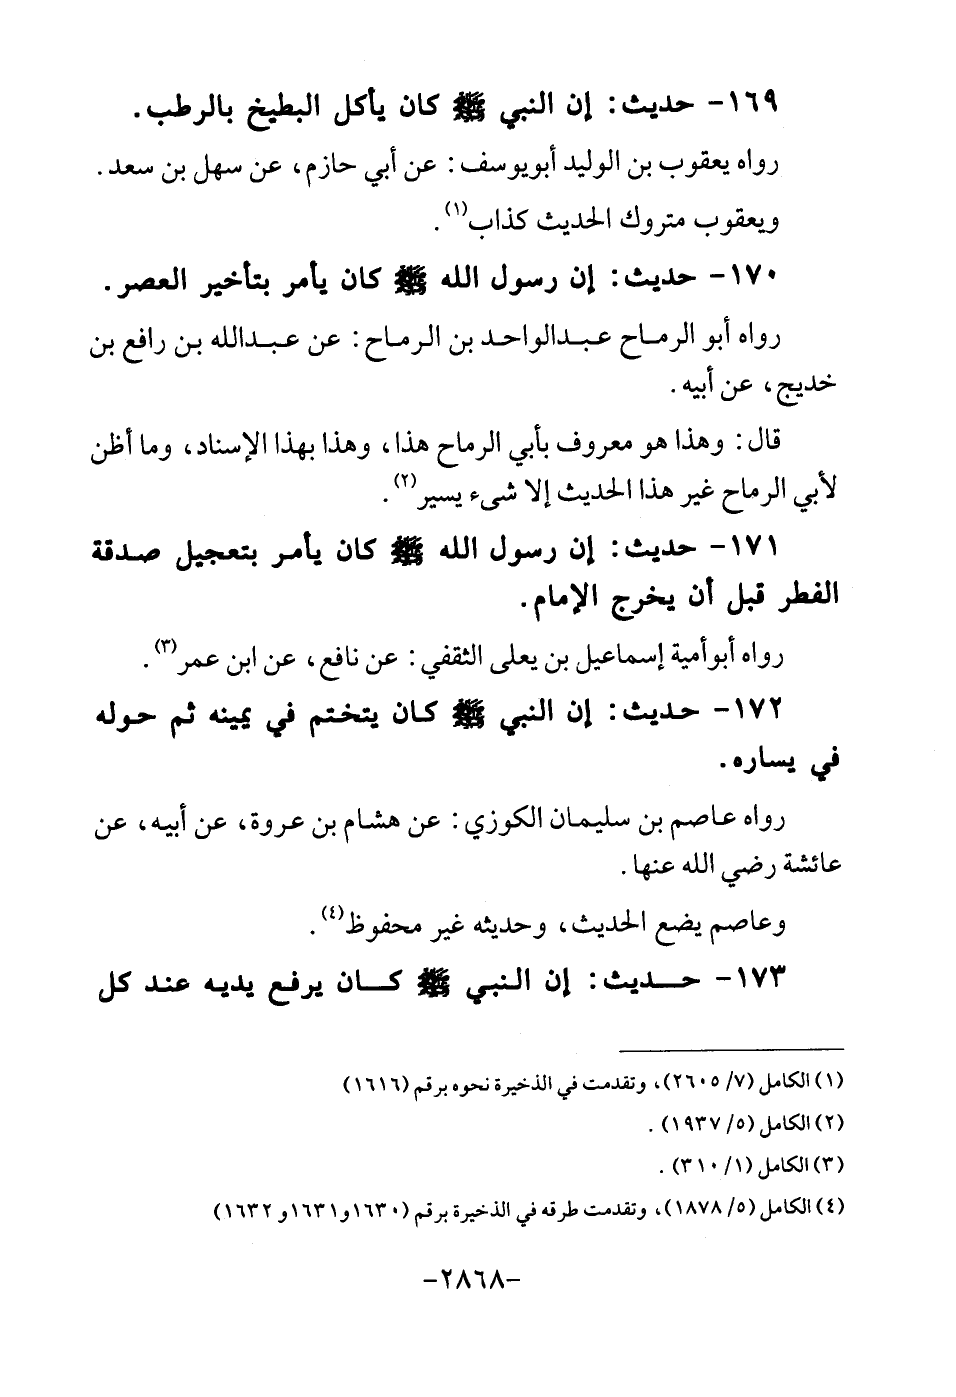 ١٦٩- حديث: إن النبي ﷺ كان يأكل البطيخ بالرطب.
رواه يعقوب بن الوليد أبويوسف: عن أبي حازم، عن سهل بن سعد.
ويعقوب متروك الحديث كذاب(١).
١٧٠- حديث: إن رسول الله ﷺ كان يأمر بتأخير العصر.
رواه أبو الرماح عبدالواحد بن الرماح: عن عبدالله بن رافع بن
خديج، عن أبيه.
قال: وهذا هو معروف بأبي الرماح هذا، وهذا بهذا الإسناد، وما أظن
لأبي الرماح غير هذا الحديث إلا شىء يسير(٢).
١٧١- حديث: إن رسول الله ﷺ كان يأمر بتعجيل صدقة
الفطر قبل أن يخرج الإمام.
رواه أبوأمية إسماعيل بن يعلى الثقفي: عن نافع، عن ابن عمر(٣).
١٧٢- حديث: إن النبي ﷺ كان يتختم في يمينه ثم حوله
في يساره.
رواه عاصم بن سليمان الكوزي: عن هشام بن عروة، عن أبيه، عن
عائشة رضي الله عنها.
وعاصم يضع الحديث، وحديثه غير محفوظ(٤).
١٧٣- حديث: إن النبي ﷺ كان يرفع يديه عند كل
(١) الكامل (٧/ ٢٦٠٥)، وتقدمت في الذخيرة نحوه برقم (١٦١٦)
(٢) الكامل (٥/ ١٩٣٧).
(٣) الكامل (١/ ٣١٠).
(٤) الكامل (٥/ ١٨٧٨)، وتقدمت طرقه في الذخيرة برقم (١٦٣٠و١٦٣١و ١٦٣٢)
-٢٨٦٨-